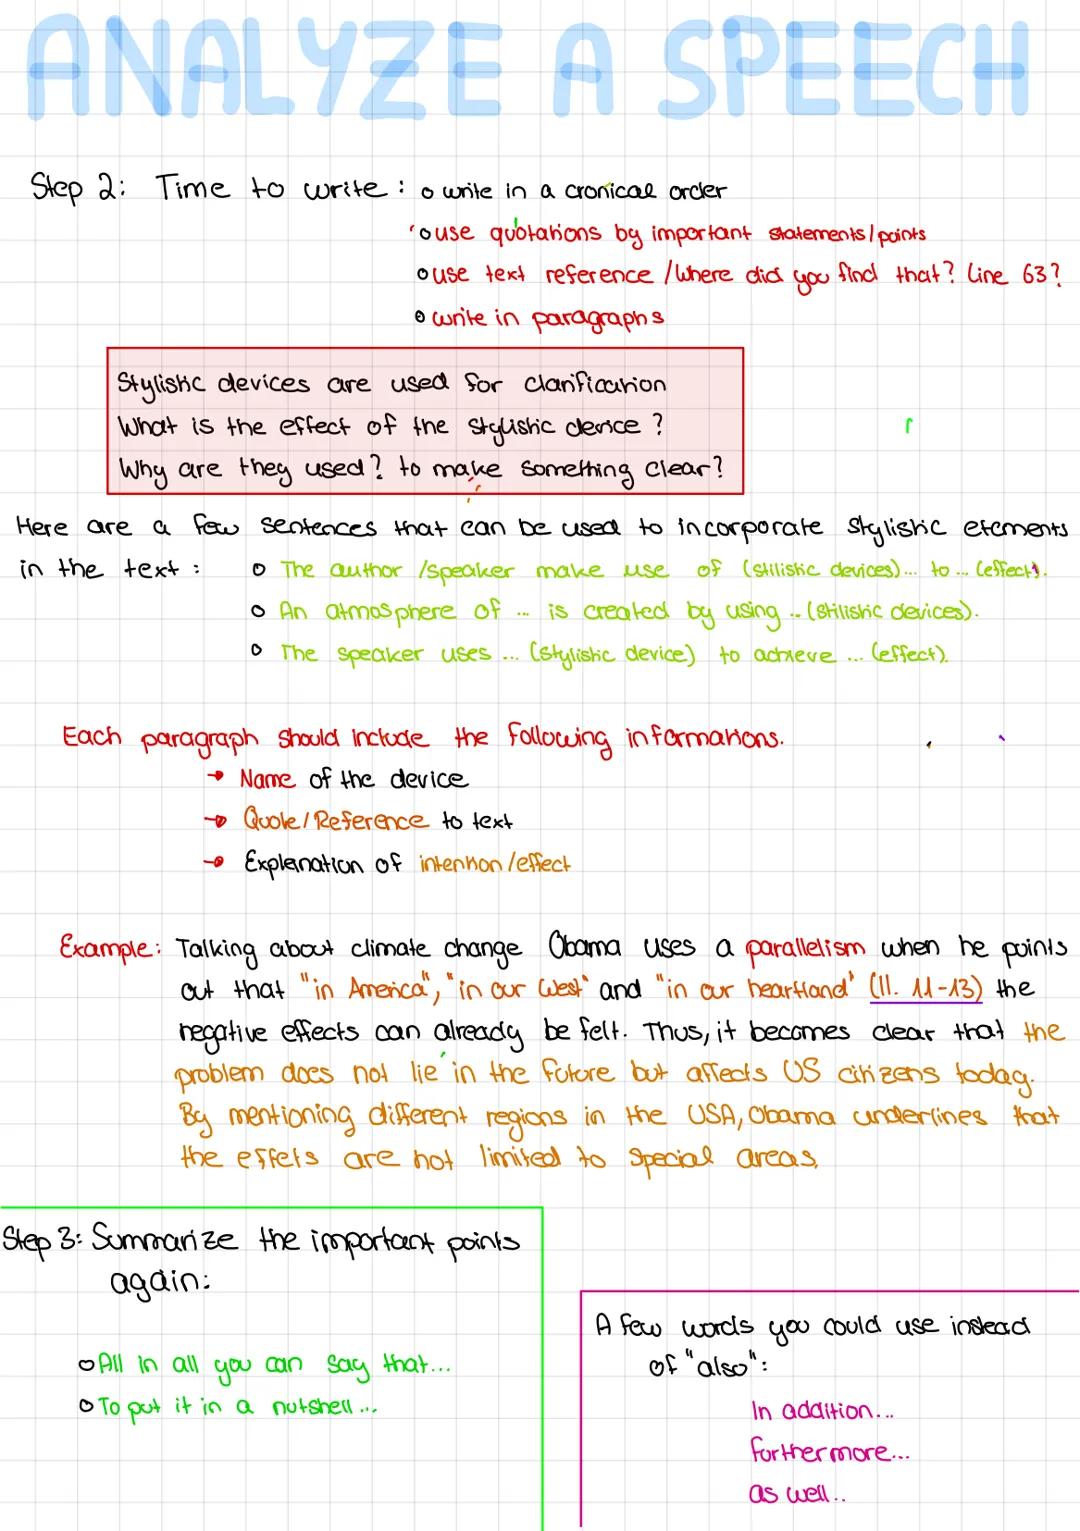 ANALYZE A SPEECH
Step 2: Time to write: o write in a cronical order
o use quotations by important statements/points
o use text reference /Where did you find that? Line 63?
o write in paragraphs
Stylistic devices are used for clarification
What is the effect of the stylistic device?
Why are they used? to make something clear?
Here are a few sentences that can be used to incorporate stylistic elements
in the text: o The author /speaker make use of (stilistic devices)... to ... (effect).
o An atmosphere of ... is created by using .. (stilistic devices).
o The speaker uses ... (stylistic device) to achieve ... (effect).
Each paragraph should include the following informations.
→ Name of the device
→ Quote/Reference to text
→ Explanation of intention/effect
Example: Talking about climate change Obama uses a parallelism when he points
out that "in America", "in our West" and "in our heartland" (ll. 11-13) the
negative effects can already be felt. Thus, it becomes clear that the
problem does not lie in the future but affects US citizens today.
By mentioning different regions in the USA, Obama underlines that
the effets are not limited to special areas.
Step 3: Summarize the important points
again:
o All in all you can say that...
o To put it in a nutshell...
A few words you could use instead
of "also":
In addition...
furthermore...
as well..